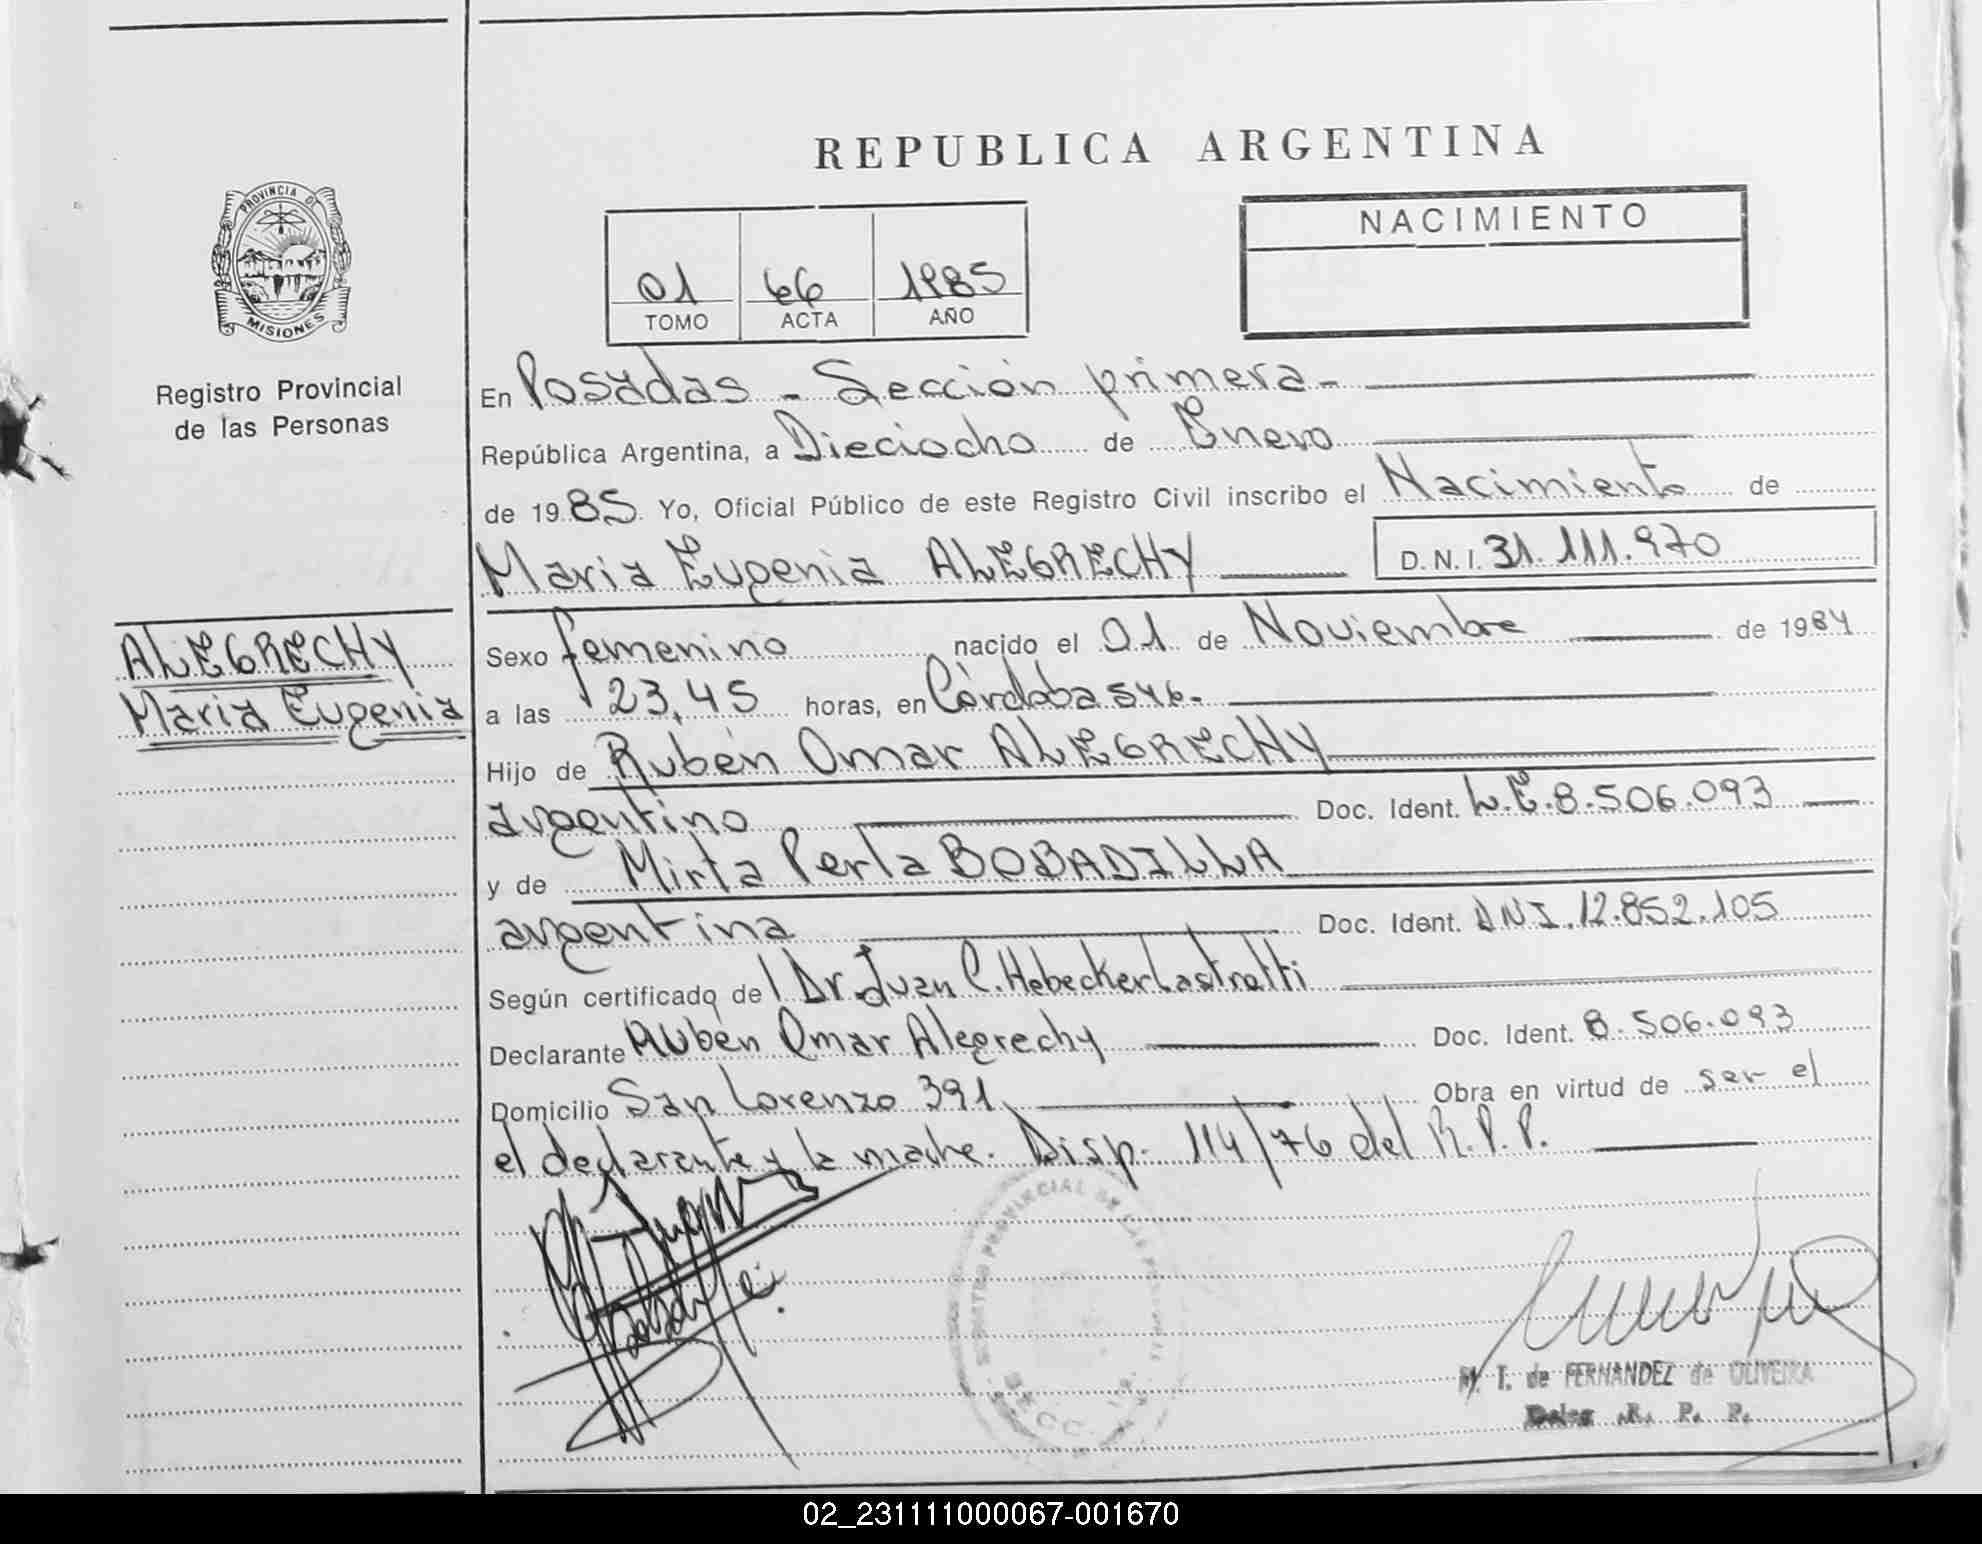 REPUBLICA ARGENTINA
PROVINCIA DE
MISIONES
Registro Provincial
de las Personas
01 66 1985
TOMO ACTA AÑO
NACIMIENTO
En Posadas - Sección primera -
República Argentina, a Dieciocho de Enero
de 1985 Yo, Oficial Público de este Registro Civil inscribo el Nacimiento de
Maria Eugenia ALEGRECHY D.N.I. 31.111.970
ALEGRECHY
Maria Eugenia
Sexo femenino nacido el 01 de Noviembre de 1984
a las 23,45 horas, en Córdoba 546.
Hijo de Rubén Omar ALEGRECHY
argentino Doc. Ident. L.E.8.506.093
y de Mirta Perla BOBADILLA
argentina Doc. Ident. DNI.12.852.105
Según certificado del Dr. Juan C. Hebecker Lastretti
Declarante Rubén Omar Alegrechy Doc. Ident. 8.506.093
Domicilio San Lorenzo 391 Obra en virtud de ser el
el declarante y la madre. Disp. 114/76 del R.P.P.
PROVINCIAL DE LAS
SECC. 1RA.
M. T. de FERNANDEZ de OLIVEIRA
R. P. P.
02_231111000067-001670